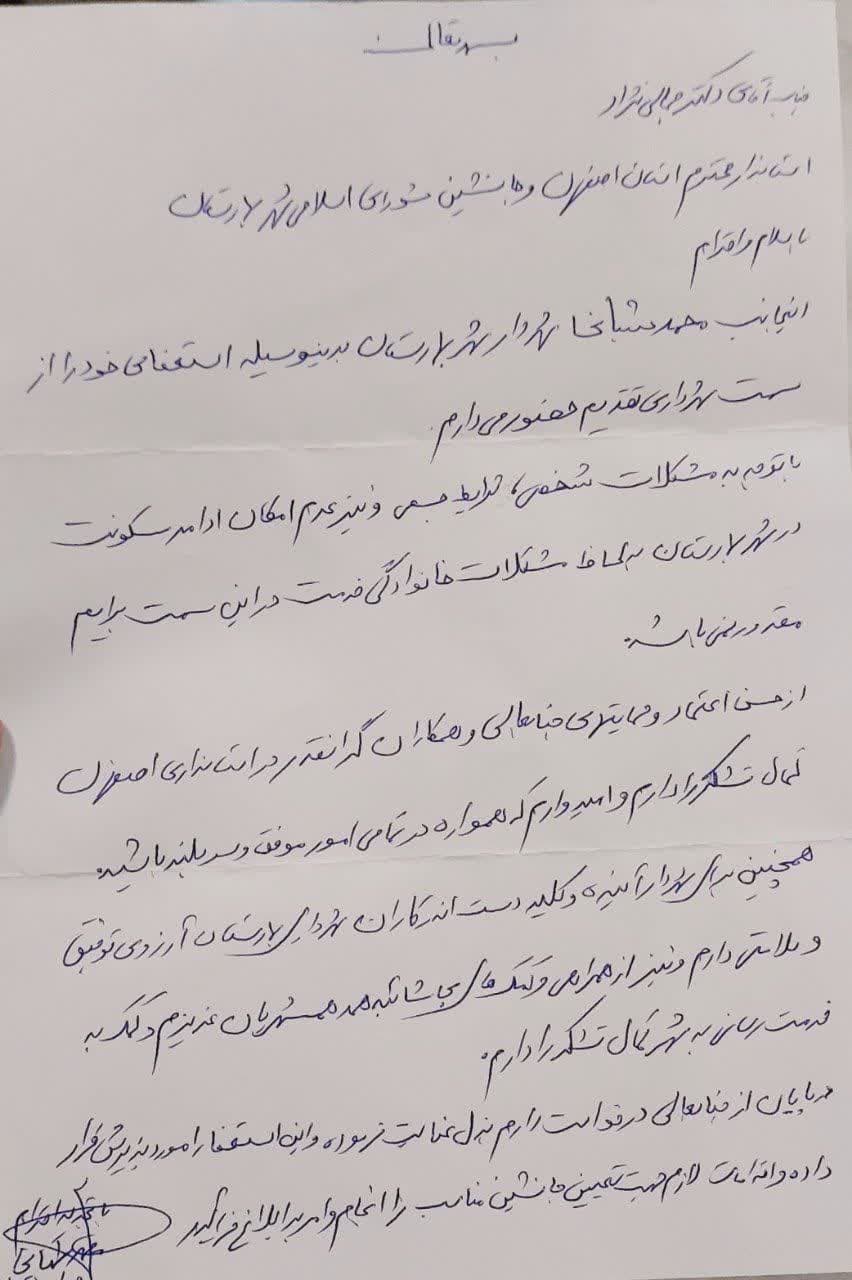 بسمه تعالی
جناب آقای دکتر جمالی نژاد
استاندار محترم استان اصفهان و جانشین شورای اسلامی شهر بهارستان
با سلام و احترام
اینجانب محمد مشهدی شهردار شهر بهارستان بدینوسیله استعفای خود را از
سمت شهرداری تقدیم حضور می دارم.
با توجه به مشکلات شخصی، شرایط جسمی و نیز عدم امکان ادامه سکونت
در شهر بهارستان به لحاظ مشکلات خانوادگی خدمت در این سمت برایم
مقدور نمی باشد.
از حسن اعتماد و حمایتهای جنابعالی و همکاران گرانقدر در استانداری اصفهان
کمال تشکر را دارم و امیدوارم که همواره در تمامی امور موفق و سربلند باشید.
همچنین برای شهردار آینده و کلیه دست اندرکاران شهرداری بهارستان آرزوی توفیق
و سلامتی دارم و نیز از همراهی و کمک های بی شائبه همه همشهریان عزیزم و کمک به
خدمت رسانی به شهر کمال تشکر را دارم.
در پایان از جنابعالی درخواست دارم بذل عنایت فرموده و این استعفا را مورد پذیرش قرار
داده و اقدامات لازم جهت تعیین جانشین مناسب را انجام و امر به ابلاغ فرمائید
با تجدید احترام